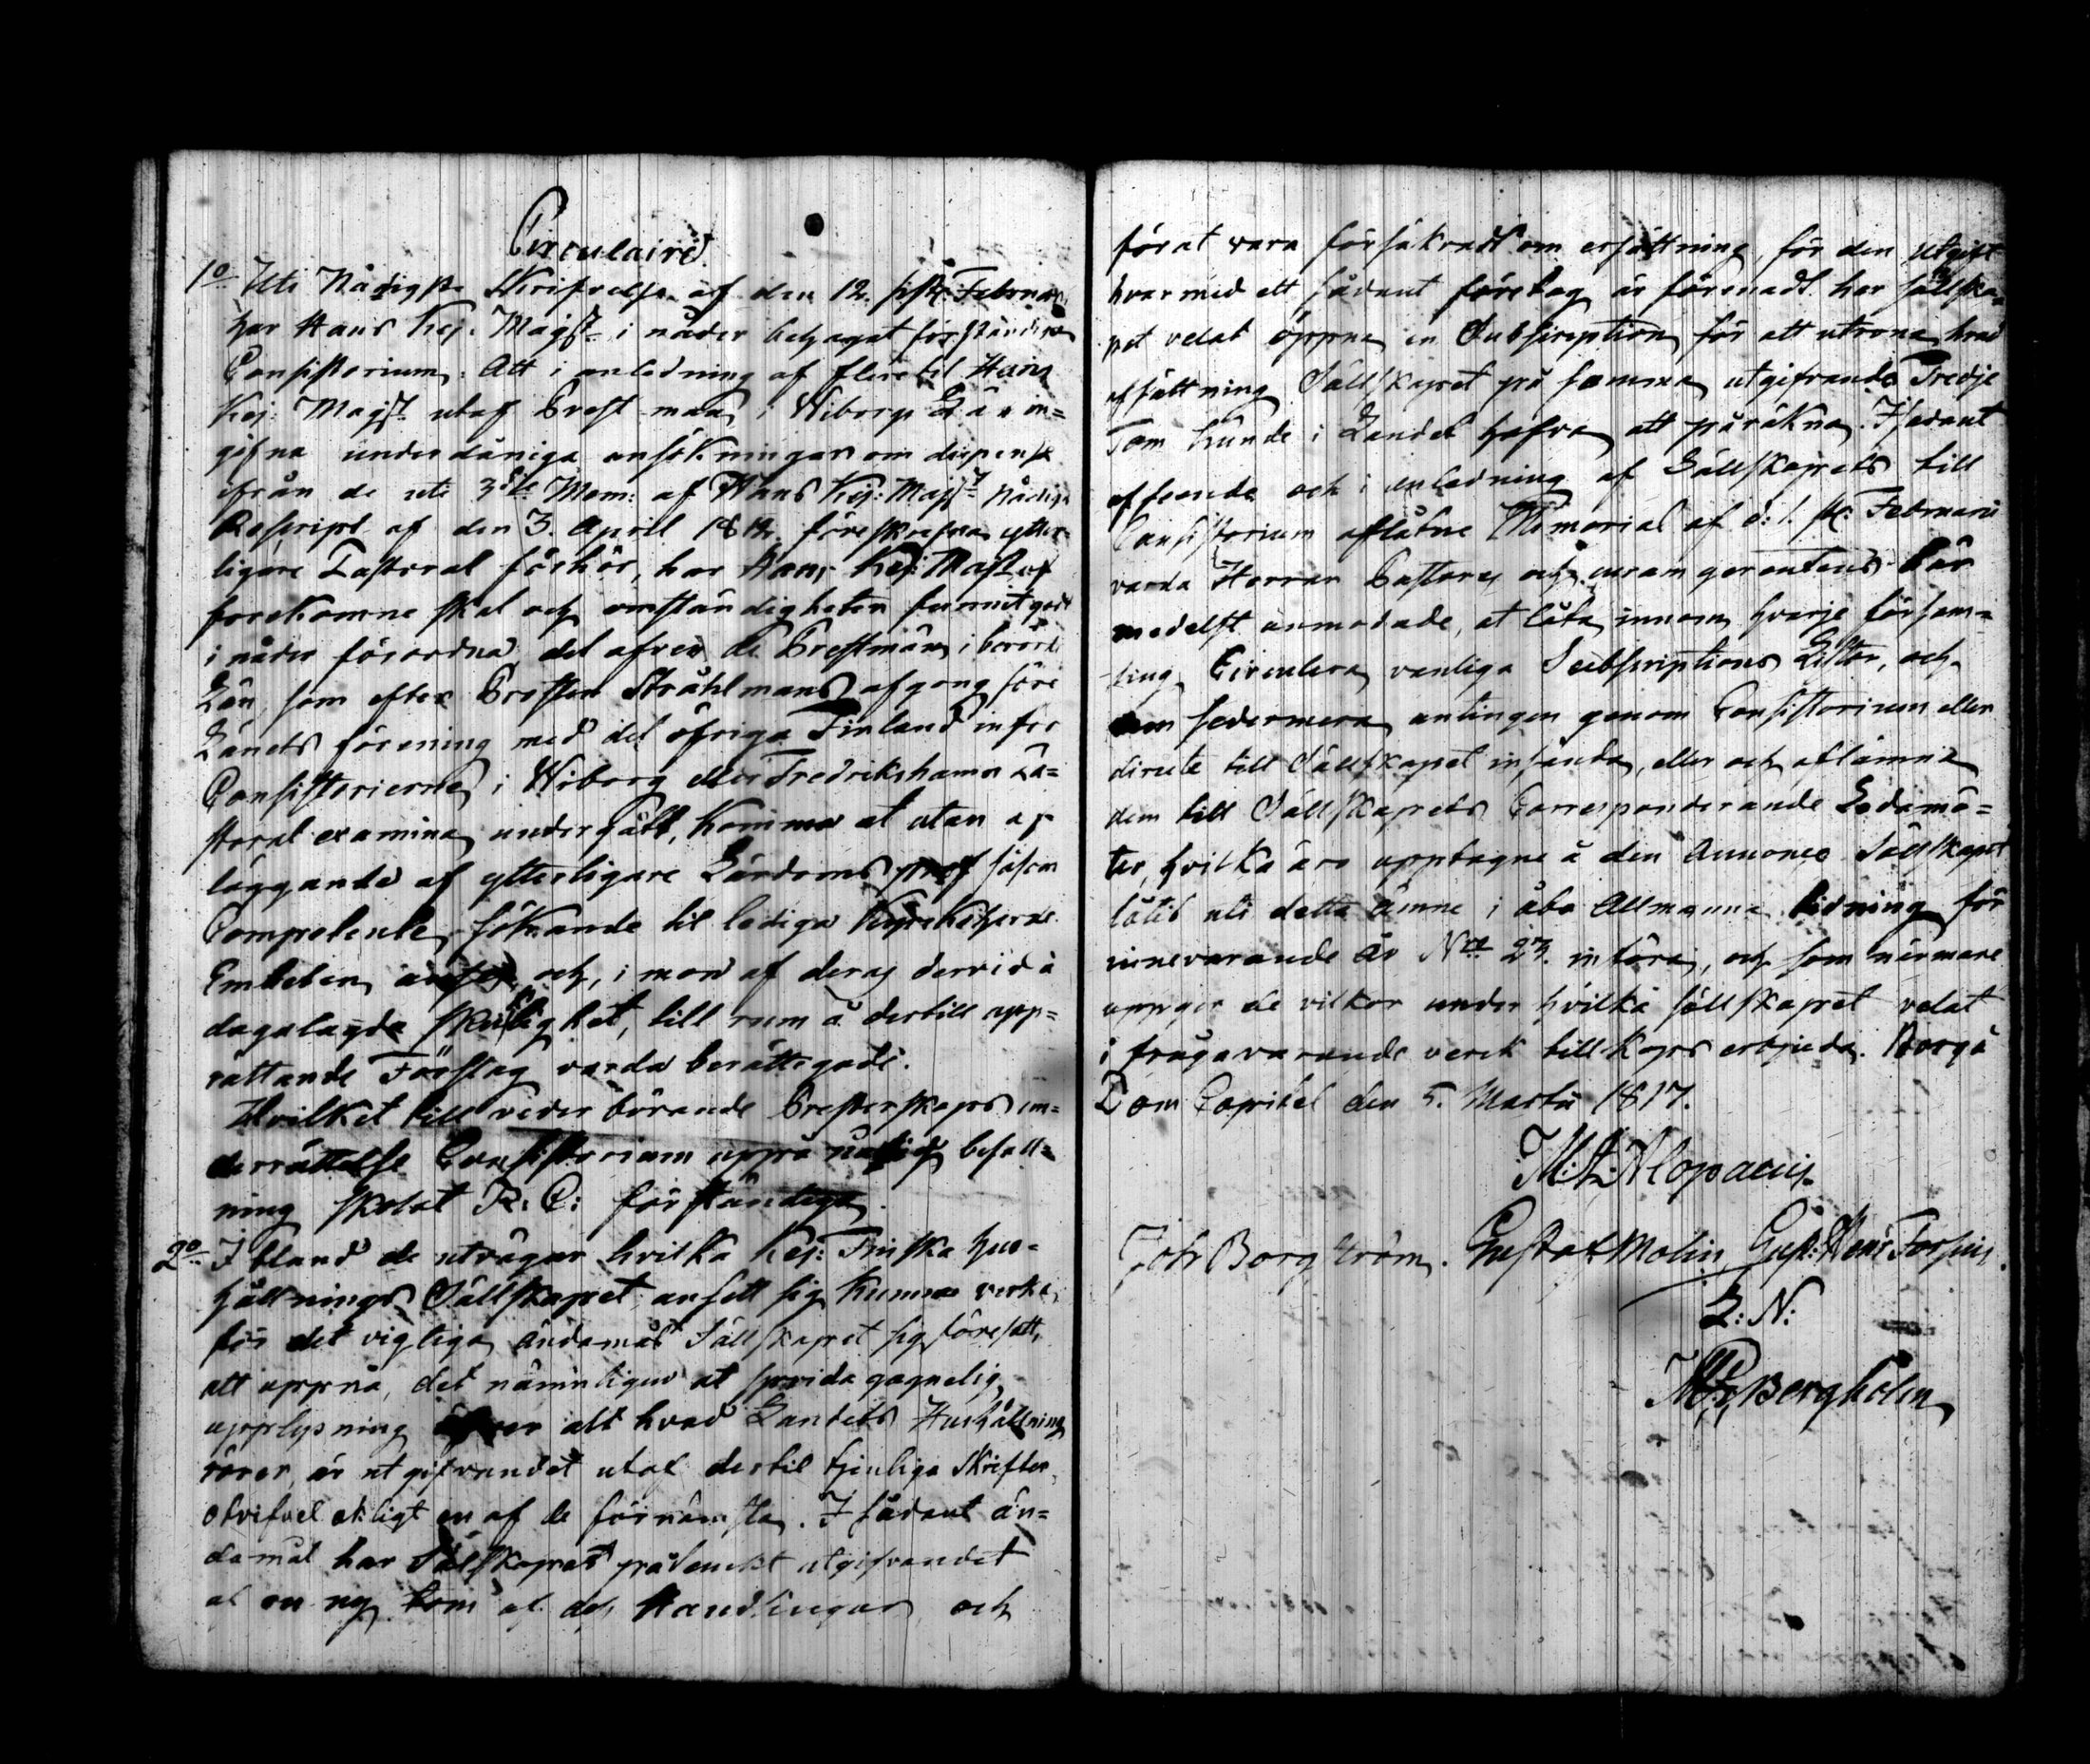 Circulaire.
1o Uti Nådigste Skrifvelse af den 12. sistl: Februari
har Hans Kej: Majst: i nåder behagat förständiga
Consistorium: Att i anledning af flere til Hans
Kej: Majst: utaf Prestmän i Wiborgs Län in=
gifna underdåniga ansökningar om dispense
ifrån de uti 3dje Mom: af Hans Kej: Majsts Nådiga
Rescript af den 3. April 1812. föreskrefna ytter=
ligare Pastoral förhör, har Hans Kej: Majst: af
forekomne skäl och omständigheter funnit godt
i nåder förordna, det afven de Prestmän, i berörde
Län, som efter Prosten Stråhlmans afgong före
Länets förening med det öfriga Finland infor
Consistorierne i Wiborg eller Fredrikshamn Pa=
storal examina undergått, komma at utan af=
läggande af ytterligare Lärdoms prof såsom
Competente sökande til lediga Kyrkoherde
Embeten anses, och, i mon af deras dervid å
dagalagda skicklighet, till rum å dertill upp=
rättande Förslag varda berättigade.
Hvilket till vederbörande Presterskaps un=
derrättelse Consistorium uppå nådig befall=
ning skolat R: C: förständiga.
2o I bland de utvägar hvilka Kej: Finska Hus=
hållnings Sällskapet ansett sig kunna verka,
för det vigtiga ändamål Sällskapet sig föresatt,
att uppnå, det nämligen at sprida gagnelig
upplysning öfver allt hvad Landets Hushållning
rörer, är utgifvandet utaf dertil tjenliga Skrifter
otvifvelaktigt en af de förnämsta. I sådant än=
damål har Sällskapet påtänckt utgifvandet
af en ny tom af dess Handlingar, och
för at vara försäkradt om ersättning, för den utgift
hvarmed ett sådant företag är förenadt har sällska=
pet velat öppna en Subscription för att utröna hvad
afsättning Sällskapet på samma utgifvande Tredje
Tom kunde i Landet hafva att påräkna. I sådant
afseende och i anledning af Sällskapets till
Consistorium aflåtne Memorial af d: 1. sistl: Februarii
varda Herrar Pastores och curam gerentes här
medelst anmodade, at låta innom hvarje försam=
ling Circulera vanliga Subscriptions Listor, och
dem sedermera antingen genom Consistorium eller
directe till Sällskapet insända, eller och aflämna
dem till Sällskapets Corresponderande Ledamö=
ter, hvilka äro upptagne å den Annonce Sällskapet
låtit uti detta ämne i Åbo Allmänna tidning för
innevarande År Nro 23. införa, och som närmare
uppger de vilkor under hvilka sällskapet velat
i frågavarande verck till köps erbjuda. Borgå
Dom Capitel den 5. Martii 1817.
M: A: Alopaeus.
Joh: Borgström. Gustaf Molin. Gust: Henr: Forsius.
L: N:
Bergholm